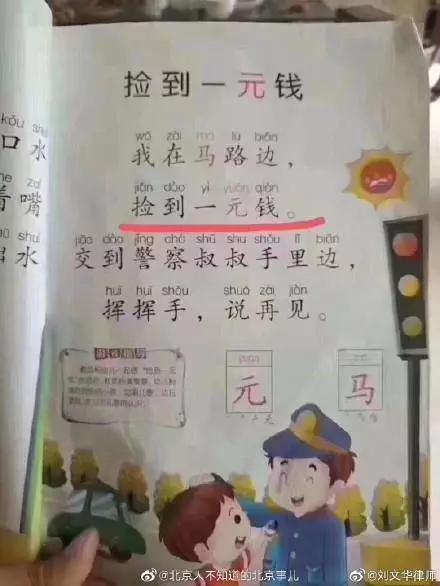 捡到一元钱
kǒu shuǐ
口水
wǒ zài mǎ lù biān
我在马路边，
jiǎn dào yì yuán qián
捡到一元钱。
着嘴
jiāo dào jǐng chá shū shu shǒu lǐ biān
交到警察叔叔手里边，
huī huī shǒu shuō zài jiàn
挥挥手，说再见。
元
马
@北京人不知道的北京事儿
@刘文华律师